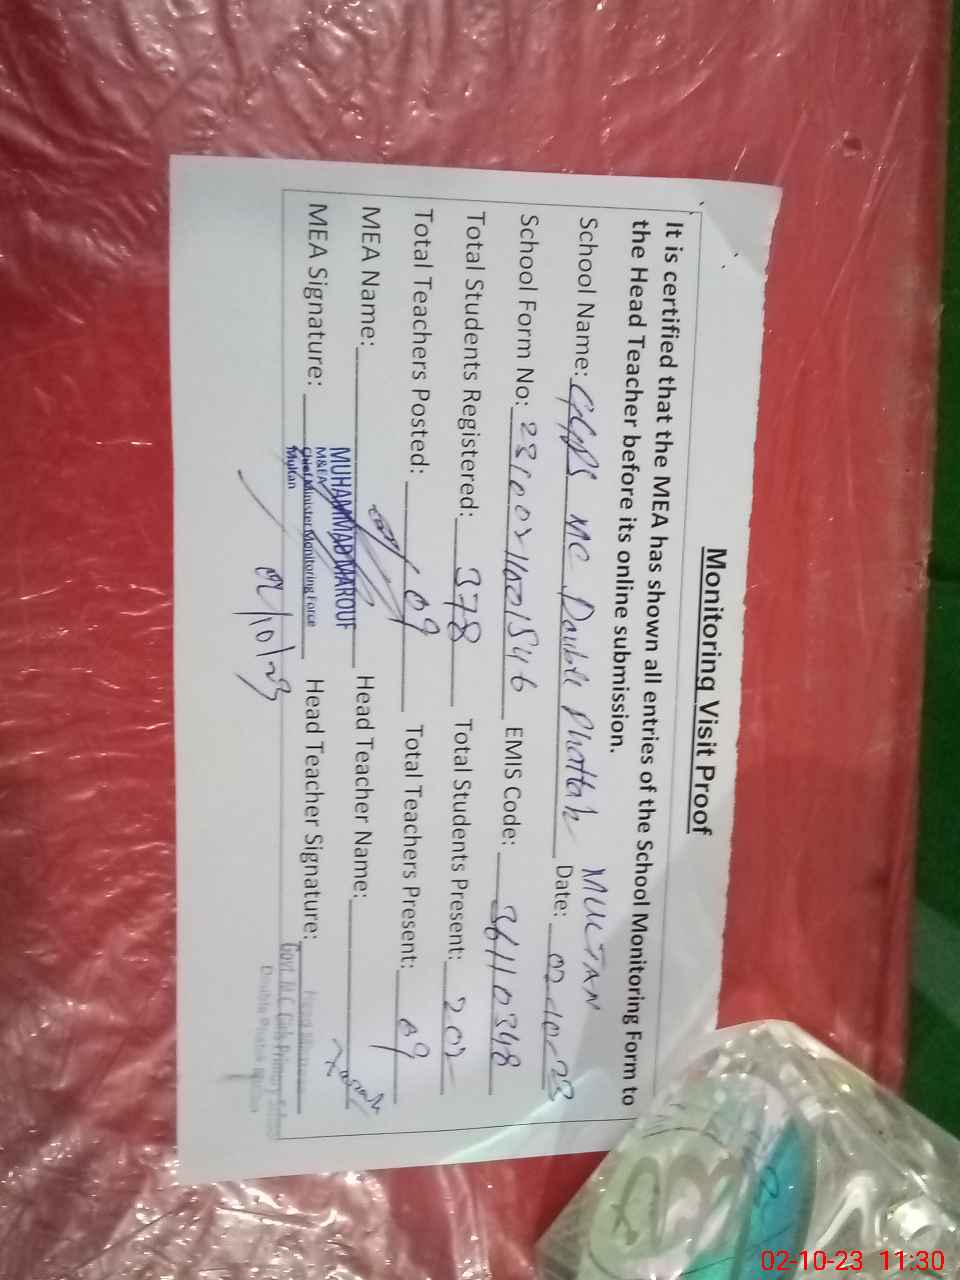 Monitoring Visit Proof
It is certified that the MEA has shown all entries of the School Monitoring Form to
the Head Teacher before its online submission.
School Name: GGPS MC Double Phattak MULTAN Date: 02-10-23
School Form No: 23100216001546 EMIS Code: 36110348
Total Students Registered: 378 Total Students Present: 202
Total Teachers Posted: 09 Total Teachers Present: 09
MEA Name: Head Teacher Name:
MUHAMMAD MAROUF
M&EA
MEA Signature: Chief Minister Monitoring Force Head Teacher Signature:
Multan
Head Mistress
Govt. M.C Girls Primary School
Double Phatak Multan
02/10/23
02-10-23 11:30